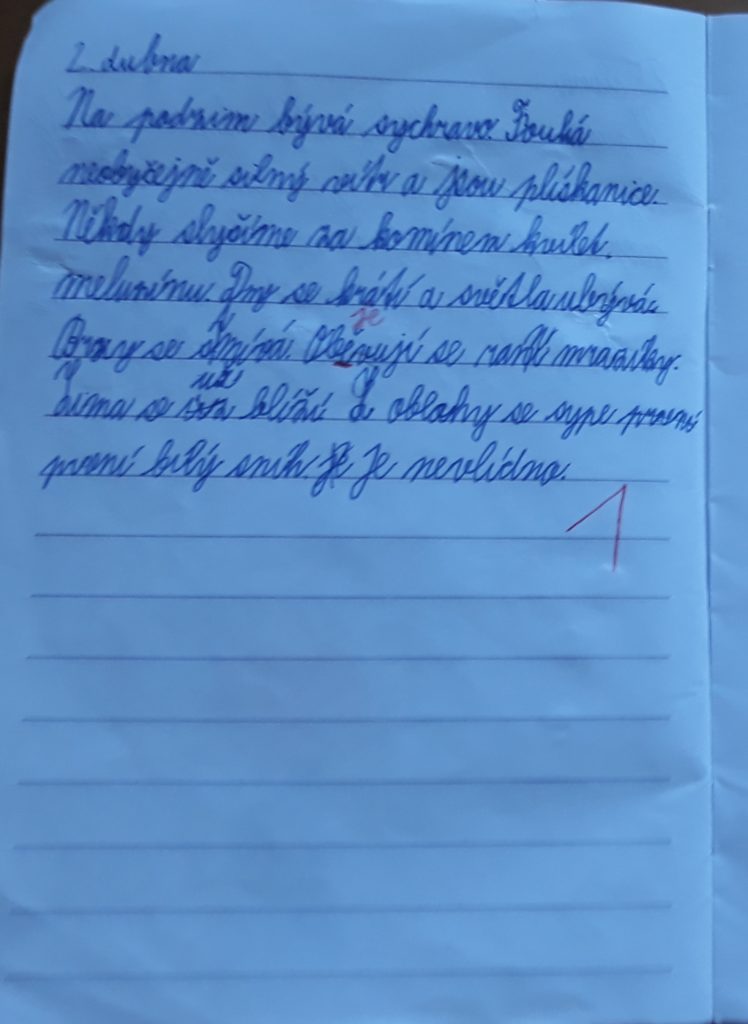 2. dubna
Na podzim bývá sychravo. Fouká
neobyčejně silný vítr a jsou plískanice.
Někdy slyšíme za komínem kvílet
meluzínu. Dny se krátí a světla ubývá.
je
Brzy se stmívá. Oběvují se ranní mrazíky.
už
Zima se blíží Z oblohy se sype první
první bílý sníh. Je nevlídno.
1